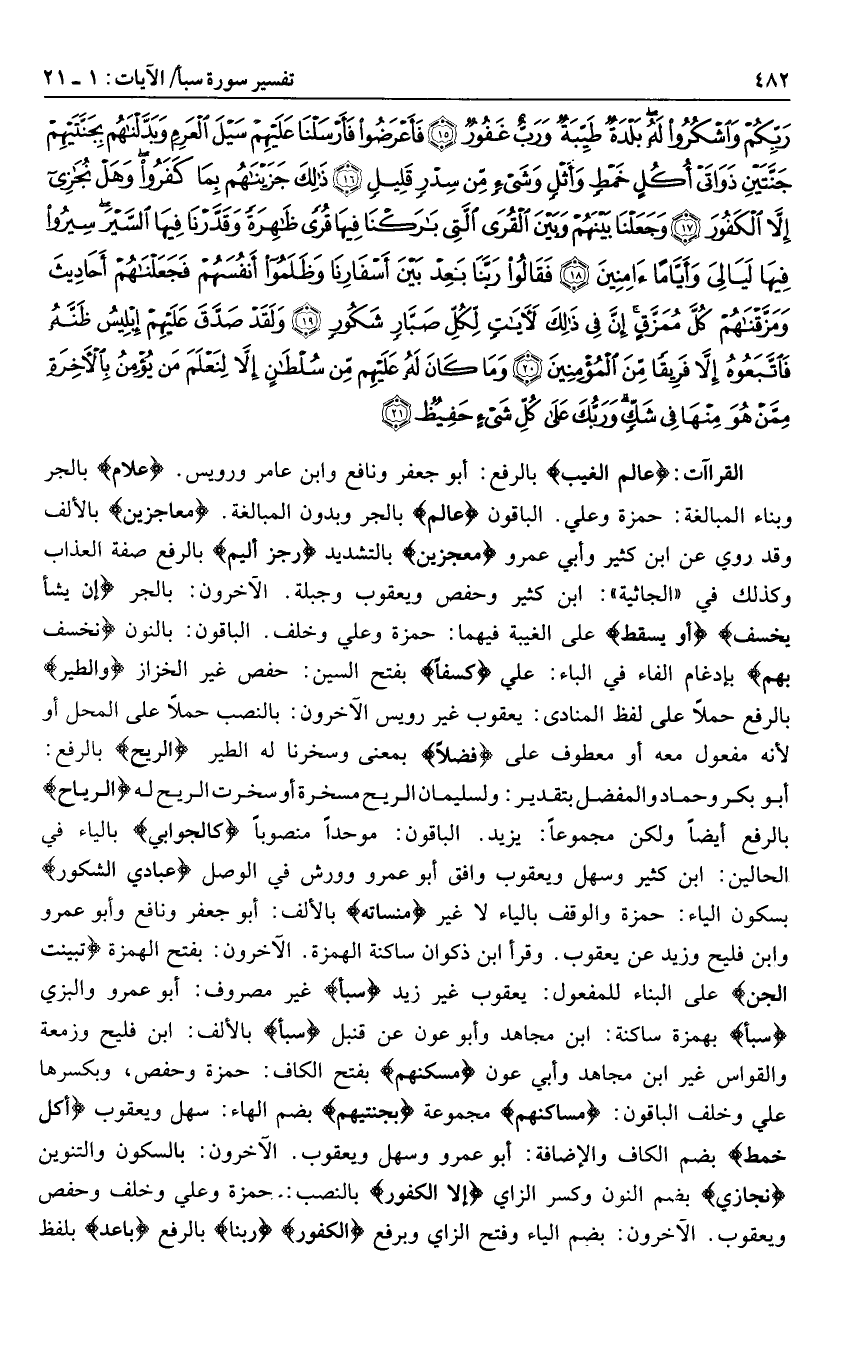 ٤٨٢ تفسير سورة سبأ/ الآيات: ١ ـ ٢١
رَبِّكُمْ وَٱشْكُرُوا۟ لَهُۥ بَلْدَةٌ طَيِّبَةٌ وَرَبٌّ غَفُورٌ ﴿١٥﴾ فَأَعْرَضُوا۟ فَأَرْسَلْنَا عَلَيْهِمْ سَيْلَ ٱلْعَرِمِ وَبَدَّلْنَٰهُم بِجَنَّتَيْهِمْ
جَنَّتَيْنِ ذَوَاتَىْ أُكُلٍ خَمْطٍ وَأَثْلٍ وَشَىْءٍ مِّن سِدْرٍ قَلِيلٍ ﴿١٦﴾ ذَٰلِكَ جَزَيْنَٰهُم بِمَا كَفَرُوا۟ وَهَلْ نُجَٰزِىٓ
إِلَّا ٱلْكَفُورَ ﴿١٧﴾ وَجَعَلْنَا بَيْنَهُمْ وَبَيْنَ ٱلْقُرَى ٱلَّتِى بَٰرَكْنَا فِيهَا قُرًى ظَٰهِرَةً وَقَدَّرْنَا فِيهَا ٱلسَّيْرَ سِيرُوا۟
فِيهَا لَيَالِىَ وَأَيَّامًا ءَامِنِينَ ﴿١٨﴾ فَقَالُوا۟ رَبَّنَا بَٰعِدْ بَيْنَ أَسْفَارِنَا وَظَلَمُوٓا۟ أَنفُسَهُمْ فَجَعَلْنَٰهُمْ أَحَادِيثَ
وَمَزَّقْنَٰهُمْ كُلَّ مُمَزَّقٍ إِنَّ فِى ذَٰلِكَ لَءَايَٰتٍ لِّكُلِّ صَبَّارٍ شَكُورٍ ﴿١٩﴾ وَلَقَدْ صَدَّقَ عَلَيْهِمْ إِبْلِيسُ ظَنَّهُۥ
فَٱتَّبَعُوهُ إِلَّا فَرِيقًا مِّنَ ٱلْمُؤْمِنِينَ ﴿٢٠﴾ وَمَا كَانَ لَهُۥ عَلَيْهِم مِّن سُلْطَٰنٍ إِلَّا لِنَعْلَمَ مَن يُؤْمِنُ بِٱلْءَاخِرَةِ
مِمَّنْ هُوَ مِنْهَا فِى شَكٍّ وَرَبُّكَ عَلَىٰ كُلِّ شَىْءٍ حَفِيظٌ ﴿٢١﴾
القراآت: ﴿عالم الغيب﴾ بالرفع: أبو جعفر ونافع وابن عامر ورويس. ﴿علام﴾ بالجر
وبناء المبالغة: حمزة وعلي. الباقون ﴿عالم﴾ بالجر وبدون المبالغة. ﴿معاجزين﴾ بالألف
وقد روي عن ابن كثير وأبي عمرو ﴿معجزين﴾ بالتشديد ﴿رجز أليم﴾ بالرفع صفة العذاب
وكذلك في «الجاثية»: ابن كثير وحفص ويعقوب وجبلة. الآخرون: بالجر ﴿إن يشأ
يخسف﴾ ﴿أو يسقط﴾ على الغيبة فيهما: حمزة وعلي وخلف. الباقون: بالنون ﴿نخسف
بهم﴾ بإدغام الفاء في الباء: علي ﴿كسفاً﴾ بفتح السين: حفص غير الخزاز ﴿والطير﴾
بالرفع حملاً على لفظ المنادى: يعقوب غير رويس الآخرون: بالنصب حملاً على المحل أو
لأنه مفعول معه أو معطوف على ﴿فضلاً﴾ بمعنى وسخرنا له الطير ﴿الريح﴾ بالرفع:
أبو بكر وحماد والمفضل بتقدير: ولسليمان الريح مسخرة أو سخرت الريح له ﴿الرياح﴾
بالرفع أيضاً ولكن مجموعاً: يزيد. الباقون: موحداً منصوباً ﴿كالجوابي﴾ بالياء في
الحالين: ابن كثير وسهل ويعقوب وافق أبو عمرو وورش في الوصل ﴿عبادي الشكور﴾
بسكون الياء: حمزة والوقف بالياء لا غير ﴿منساته﴾ بالألف: أبو جعفر ونافع وأبو عمرو
وابن فليح وزيد عن يعقوب. وقرأ ابن ذكوان ساكنة الهمزة. الآخرون: بفتح الهمزة ﴿تبينت
الجن﴾ على البناء للمفعول: يعقوب غير زيد ﴿سبأ﴾ غير مصروف: أبو عمرو والبزي
﴿سبأ﴾ بهمزة ساكنة: ابن مجاهد وأبو عون عن قنبل ﴿سبأ﴾ بالألف: ابن فليح وزمعة
والقواس غير ابن مجاهد وأبي عون ﴿مسكنهم﴾ بفتح الكاف: حمزة وحفص، وبكسرها
علي وخلف الباقون: ﴿مساكنهم﴾ مجموعة ﴿بجنتيهم﴾ بضم الهاء: سهل ويعقوب ﴿أكل
خمط﴾ بضم الكاف والإضافة: أبو عمرو وسهل ويعقوب. الآخرون: بالسكون والتنوين
﴿نجازي﴾ بضم النون وكسر الزاي ﴿إلا الكفور﴾ بالنصب:. حمزة وعلي وخلف وحفص
ويعقوب. الآخرون: بضم الياء وفتح الزاي وبرفع ﴿الكفور﴾ ﴿ربنا﴾ بالرفع ﴿باعد﴾ بلفظ